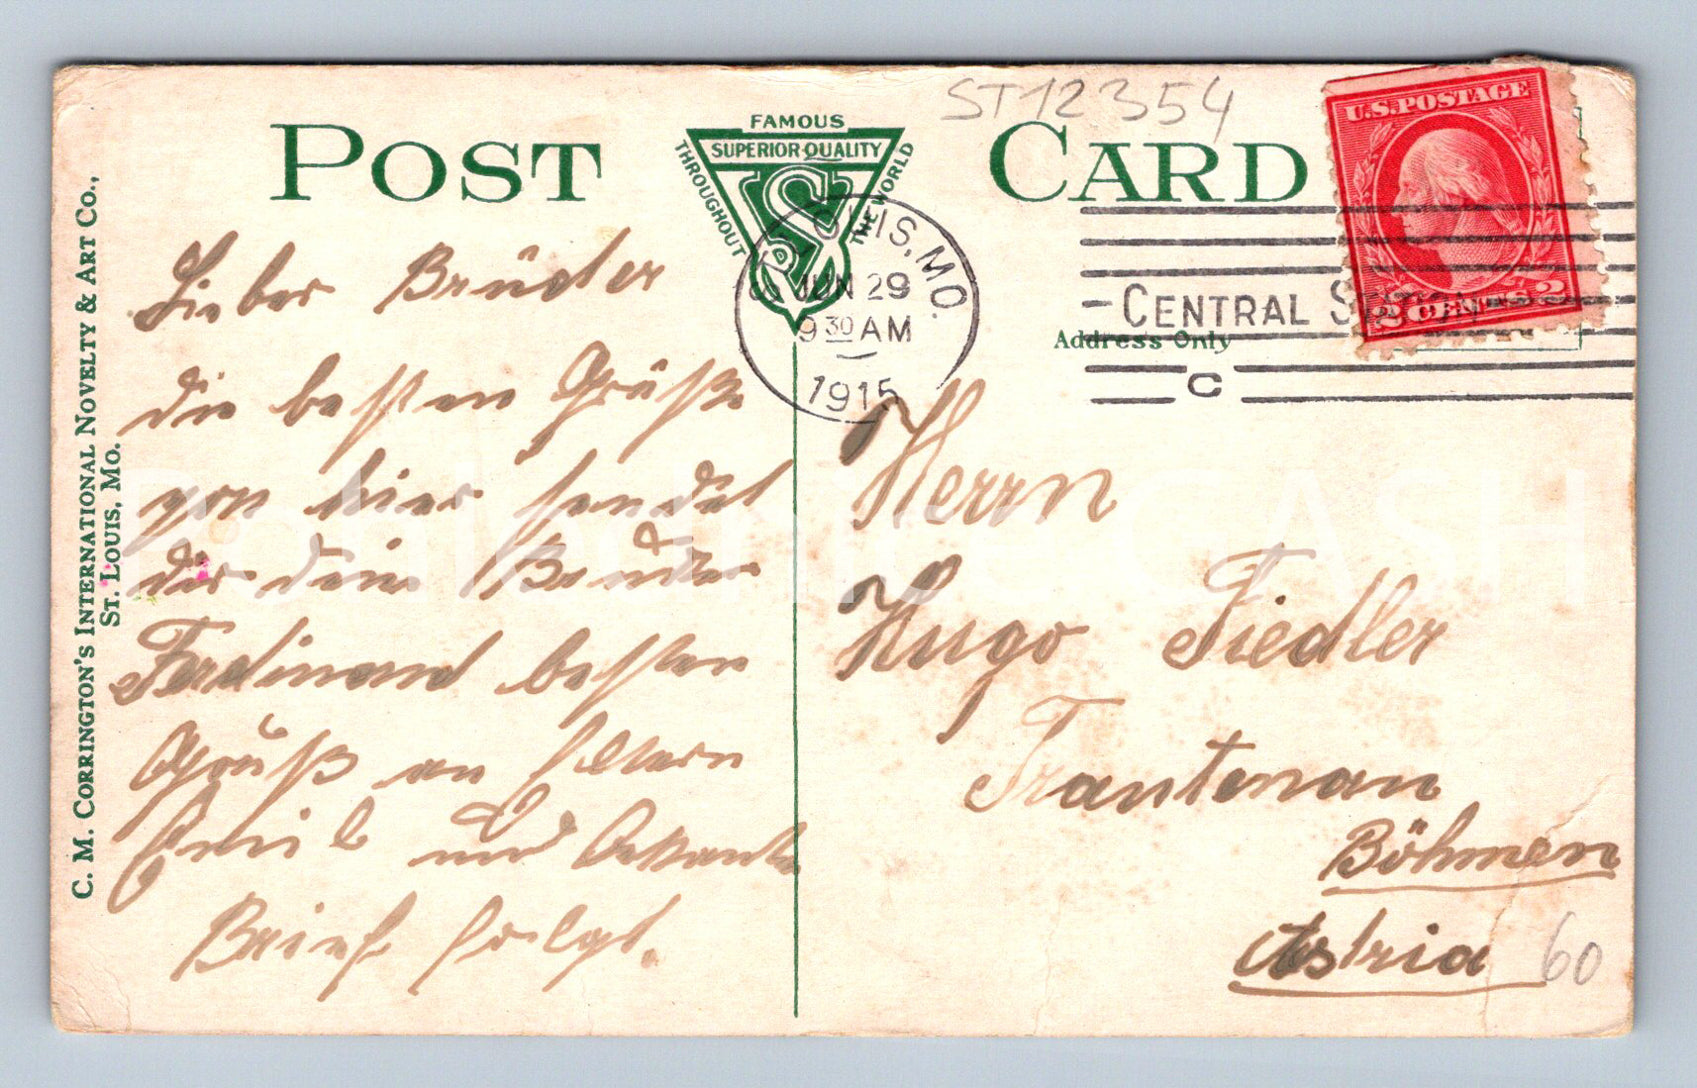 ST12354
POST CARD
FAMOUS
SUPERIOR QUALITY
THROUGHOUT THE WORLD
U.S. POSTAGE
2 CENTS 2
LOUIS, MO.
JUN 29
9 30 AM
1915
CENTRAL
C
Address Only
C. M. CORRINGTON'S INTERNATIONAL NOVELTY & ART CO.,
ST. LOUIS, MO.
Lieber Bruder
die besten Grüße
von hier sendet
dir dein Bruder
Ferdinand besten
Gruß an Eltern
Emil und
Brief folgt.
Herrn
Hugo Fiedler
Trautenau
Böhmen
Astria
60
CASH